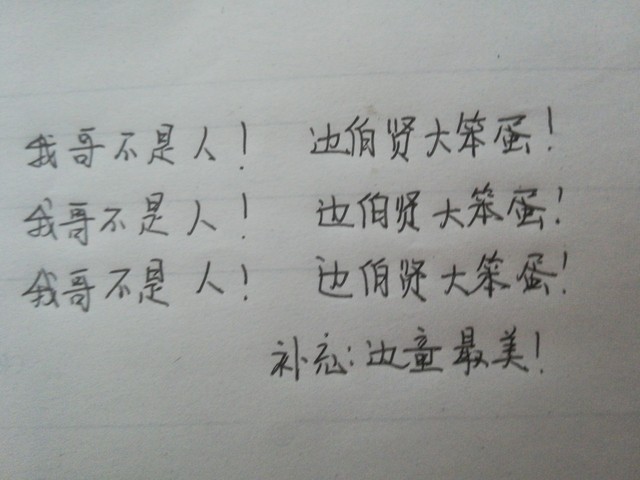 我哥不是人! 边伯贤大笨蛋!
我哥不是人! 边伯贤大笨蛋!
我哥不是人! 边伯贤大笨蛋!
补充:边童最美!